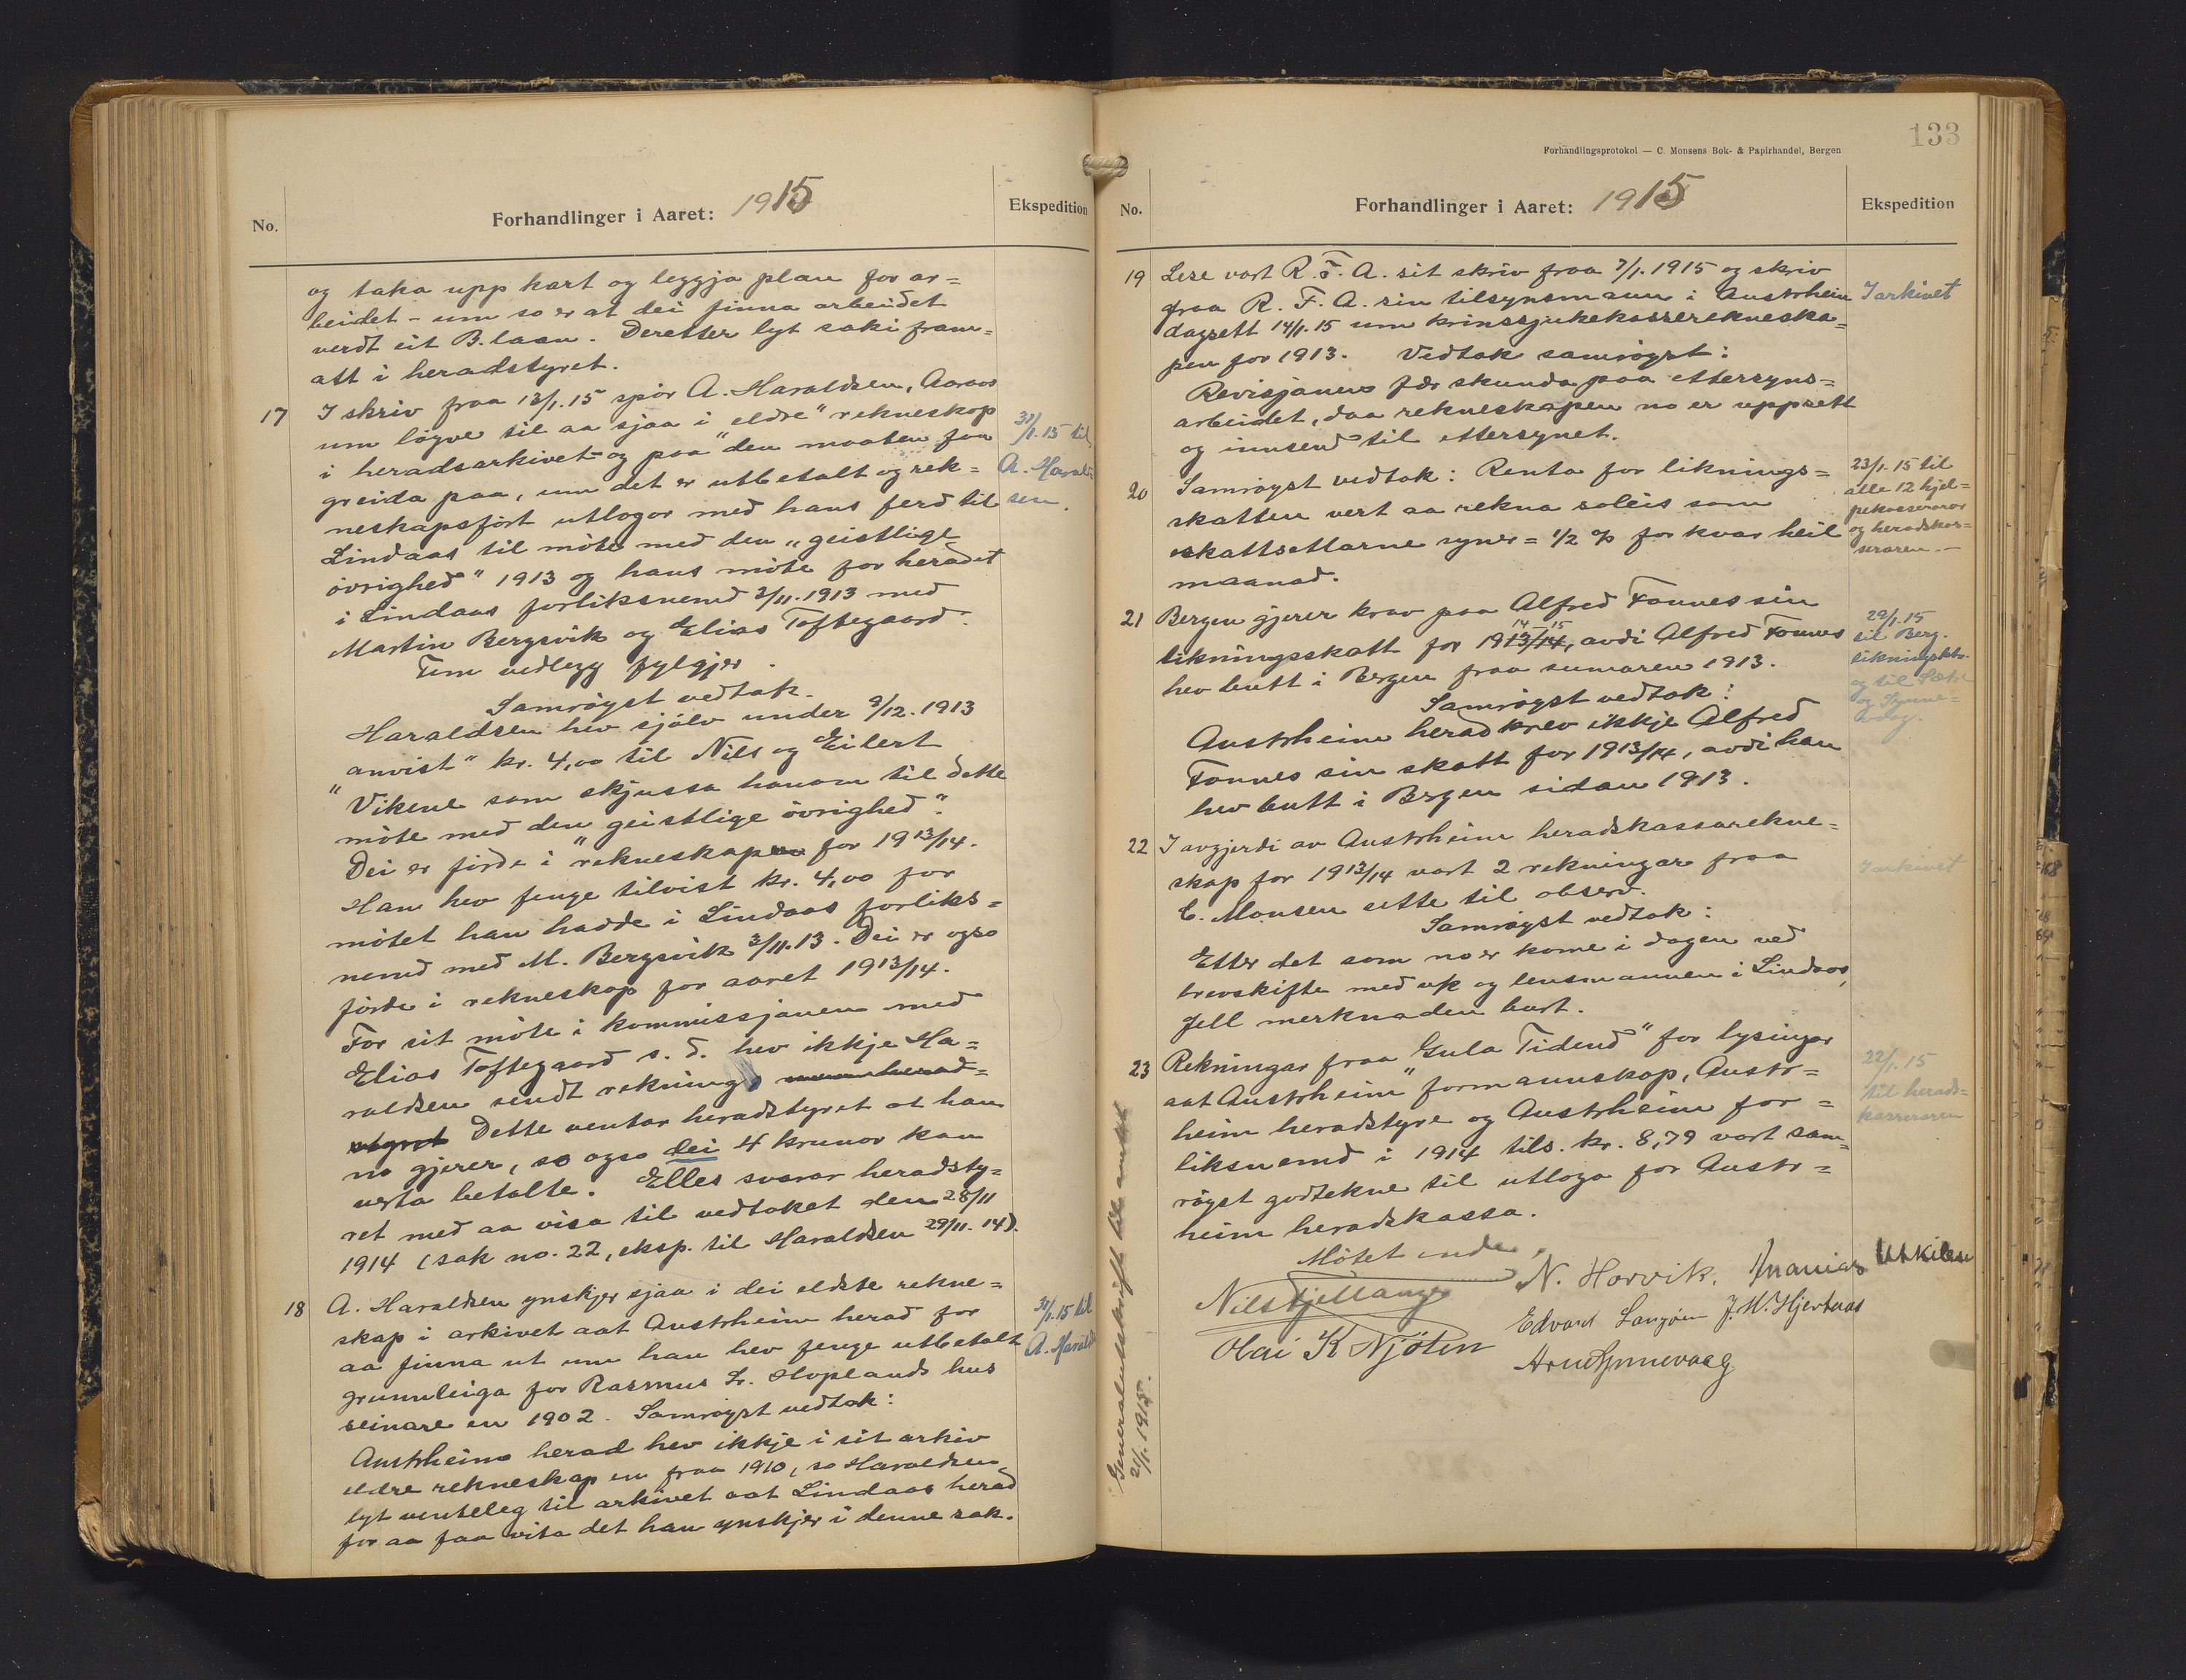 No.
Forhandlinger i Aaret: 1915
Ekspedition
og taka upp kart og leggja plan for ar=
beidet – um so er at dei finna arbeidet
verdt eit B.laan. Deretter lyt saki fram=
att i heradstyret.
17 I skriv fraa 13/1.15 spör A. Haraldsen, Aaraas
um löyve til aa sjaa i "eldre" rekneskap
i heradsarkivet og paa den maaten faa
greida paa, um det er utbetalt og rek=
neskapsfört utlogor med hans ferd til
Lindaas til möte med den "geistlige
övrighed" 1913 og hans möte for heradet
i Lindaas forliksnemd 3/11.1913 med
Martin Bergsvik og Elias Toftegaard.
Fem vedlegg fylgjer.
31/1.15 til
A. Harald=
sen.
Samröyst vedtak.
Haraldsen hev sjölv under 9/12.1913
"anvist" kr. 4,00 til Nils og Eilert
Vikene som skjussa honom til dette
möte med den "geistlige övrighed".
Dei er förde i rekneskapen for 1913/14.
Han hev fenge tilvist kr. 4,00 for
mötet han hadde i Lindaas forliks=
nemd med M. Bergsvik 3/11.13. Dei er ogso
förde i rekneskap for aaret 1913/14.
For sit möte i kommissjonen med
Elias Toftegaard s. d. hev ikkje Ha=
raldsen sendt rekning
Dette ventar heradstyret at han
no gjerer, so ogso dei 4 krunor kan
verta betalte. Elles svarar heradsty=
ret med aa visa til vedtaket den 28/11
1914 (sak no. 22, eksp. til Haraldsen 29/11.14).
18 A. Haraldsen ynskjer sjaa i dei eldste rekne=
skap i arkivet aat Austrheim herad for
aa finna ut um han hev fenge utbetalt
grunnleiga for Rasmus Hoplands hus
seinare en 1902. Samröyst vedtak:
31/1.15 til
A. Harald
Austrheim herad hev ikkje i sit arkiv
eldre rekneskap en fraa 1910, so Haraldsen
lyt venteleg til arkivet aat Lindaas herad
for aa faa vita det han ynskjer i denne sak.
Forhandlingsprotokol — C. Monsens Bok- & Papirhandel, Bergen
133
No.
Forhandlinger i Aaret: 1915
Ekspedition
19 Lese vart R.F.A. sit skriv fraa 7/1.1915 og skriv
fraa R.F.A. sin tilsynsmann i Austrheim
dagsett 14/1.15 um krinssjukekasserekneska=
pen for 1913. Vedtak samröyst:
I arkivet
Revisjonen fær skunda paa ettersyns=
arbeidet, daa rekneskapen no er uppsett
og innsend til ettersynet.
20 Samröyst vedtak: Renta for liknings=
skatten vert aa rekna soleis som
skattsetlarne syner = 1/2 % for kvar heil
maanad.
23/1.15 til
alle 12 hjel=
pekasserarar
og heradskas=
seraren.–
21 Bergen gjerer krav paa Alfred Fonnes sin
14–15
likningsskatt for 1913/14, avdi Alfred Fonnes
hev butt i Bergen fraa sumaren 1913.
29/1.15
til Berg.
likningsktr.
og til Sætre
og Synne=
vaag.
Samröyst vedtak:
Austrheim herad krev ikkje Alfred
Fonnes sin skatt for 1913/14, avdi han
hev butt i Bergen sidan 1913.
22 I avgjerdi av Austrheim heradskassarekne=
skap for 1913/14 vart 2 rekningar fraa
C. Monsen sette til observ.
I arkivet
Samröyst vedtak:
Etter det som no er kome i dagen ved
brevskifte med vk og lensmannen i Lindaas,
fell merknaden burt.
23 Rekningar fraa "Gula Tidend" for lysingar
aat Austrheim formannskap, Austr=
heim heradstyre og Austrheim for=
liksnemd i 1914 tils. kr. 8,79 vart sam=
röyst godtekne til utloga for Austr=
heim heradskassa.
22/1.15
til herads=
kasseraren
Mötet enda.
Nils Fjellanger N. Horvik. Ananias Utkilen
Olai K Njöten Edvard Langöen J. M. Hjertaas
Arne Synnevaag
Generalutskrift til amtet
21/1.1915.